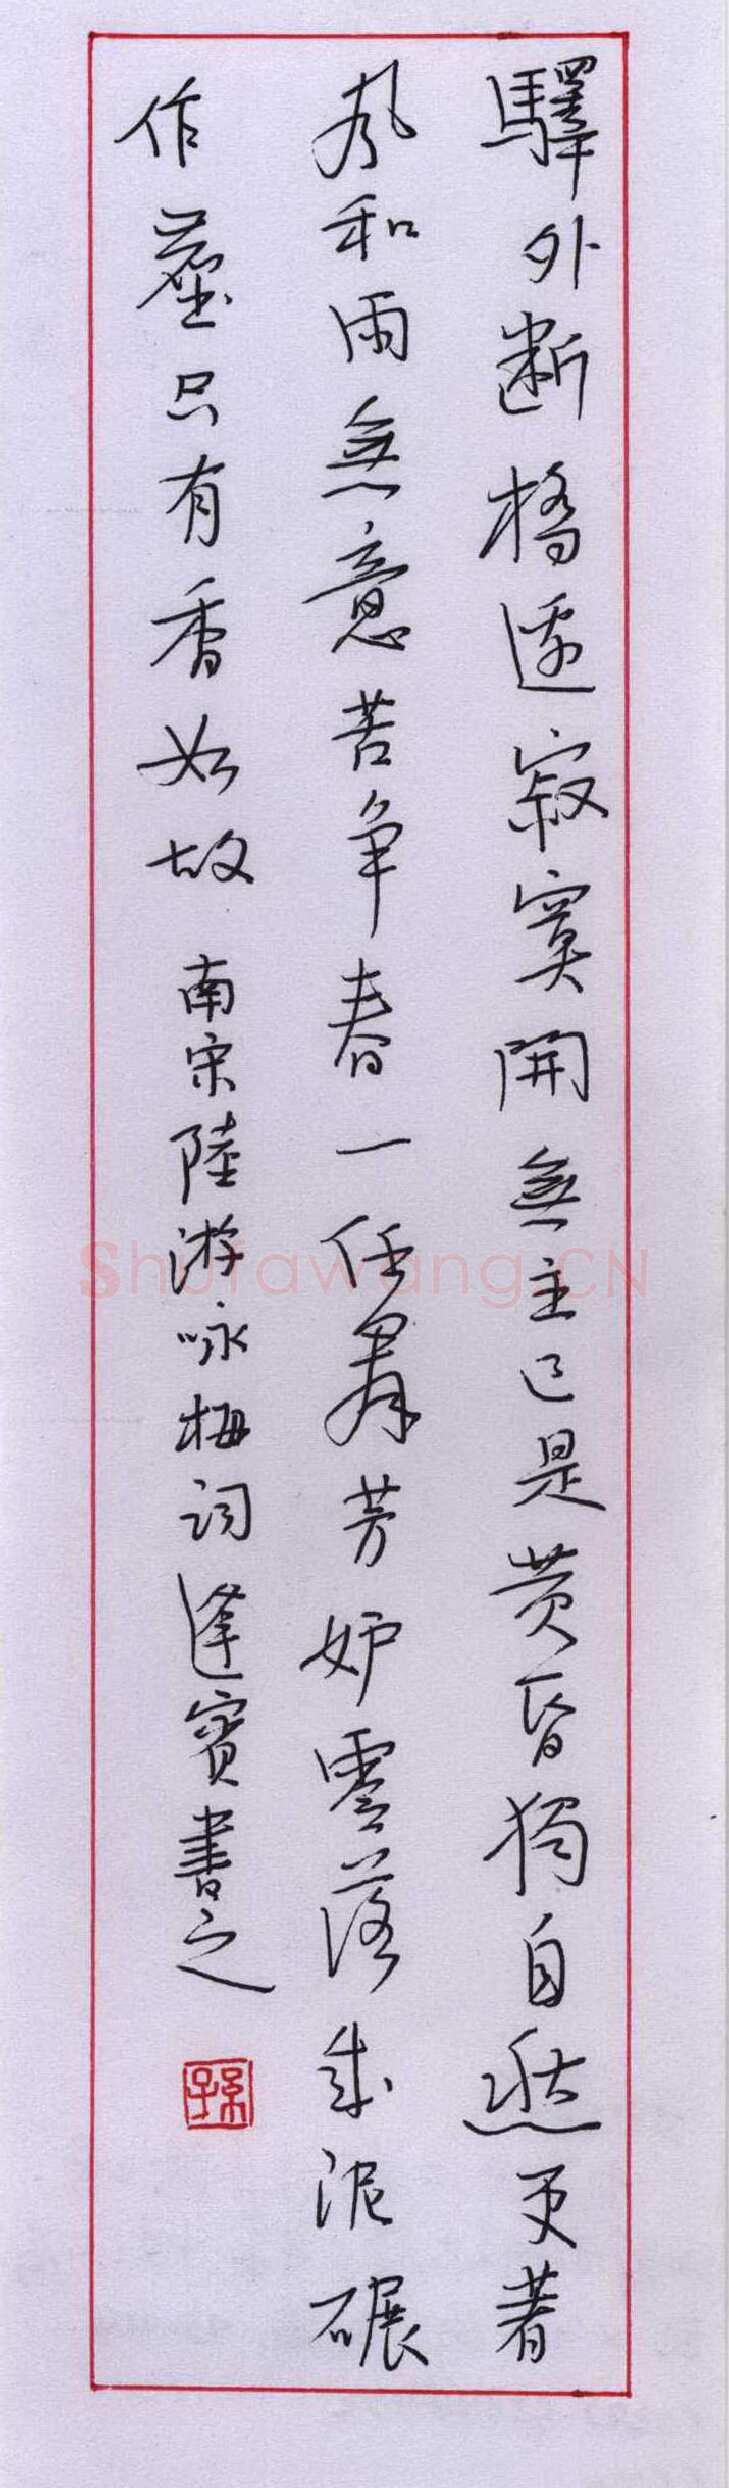 驛外断橋邊寂寞開無主已是黄昏獨自愁更著
風和雨無意苦争春一任羣芳妒零落成泥碾
作塵只有香如故 南宋陸游咏梅词逢賓書之
孫
Shufawang.CN